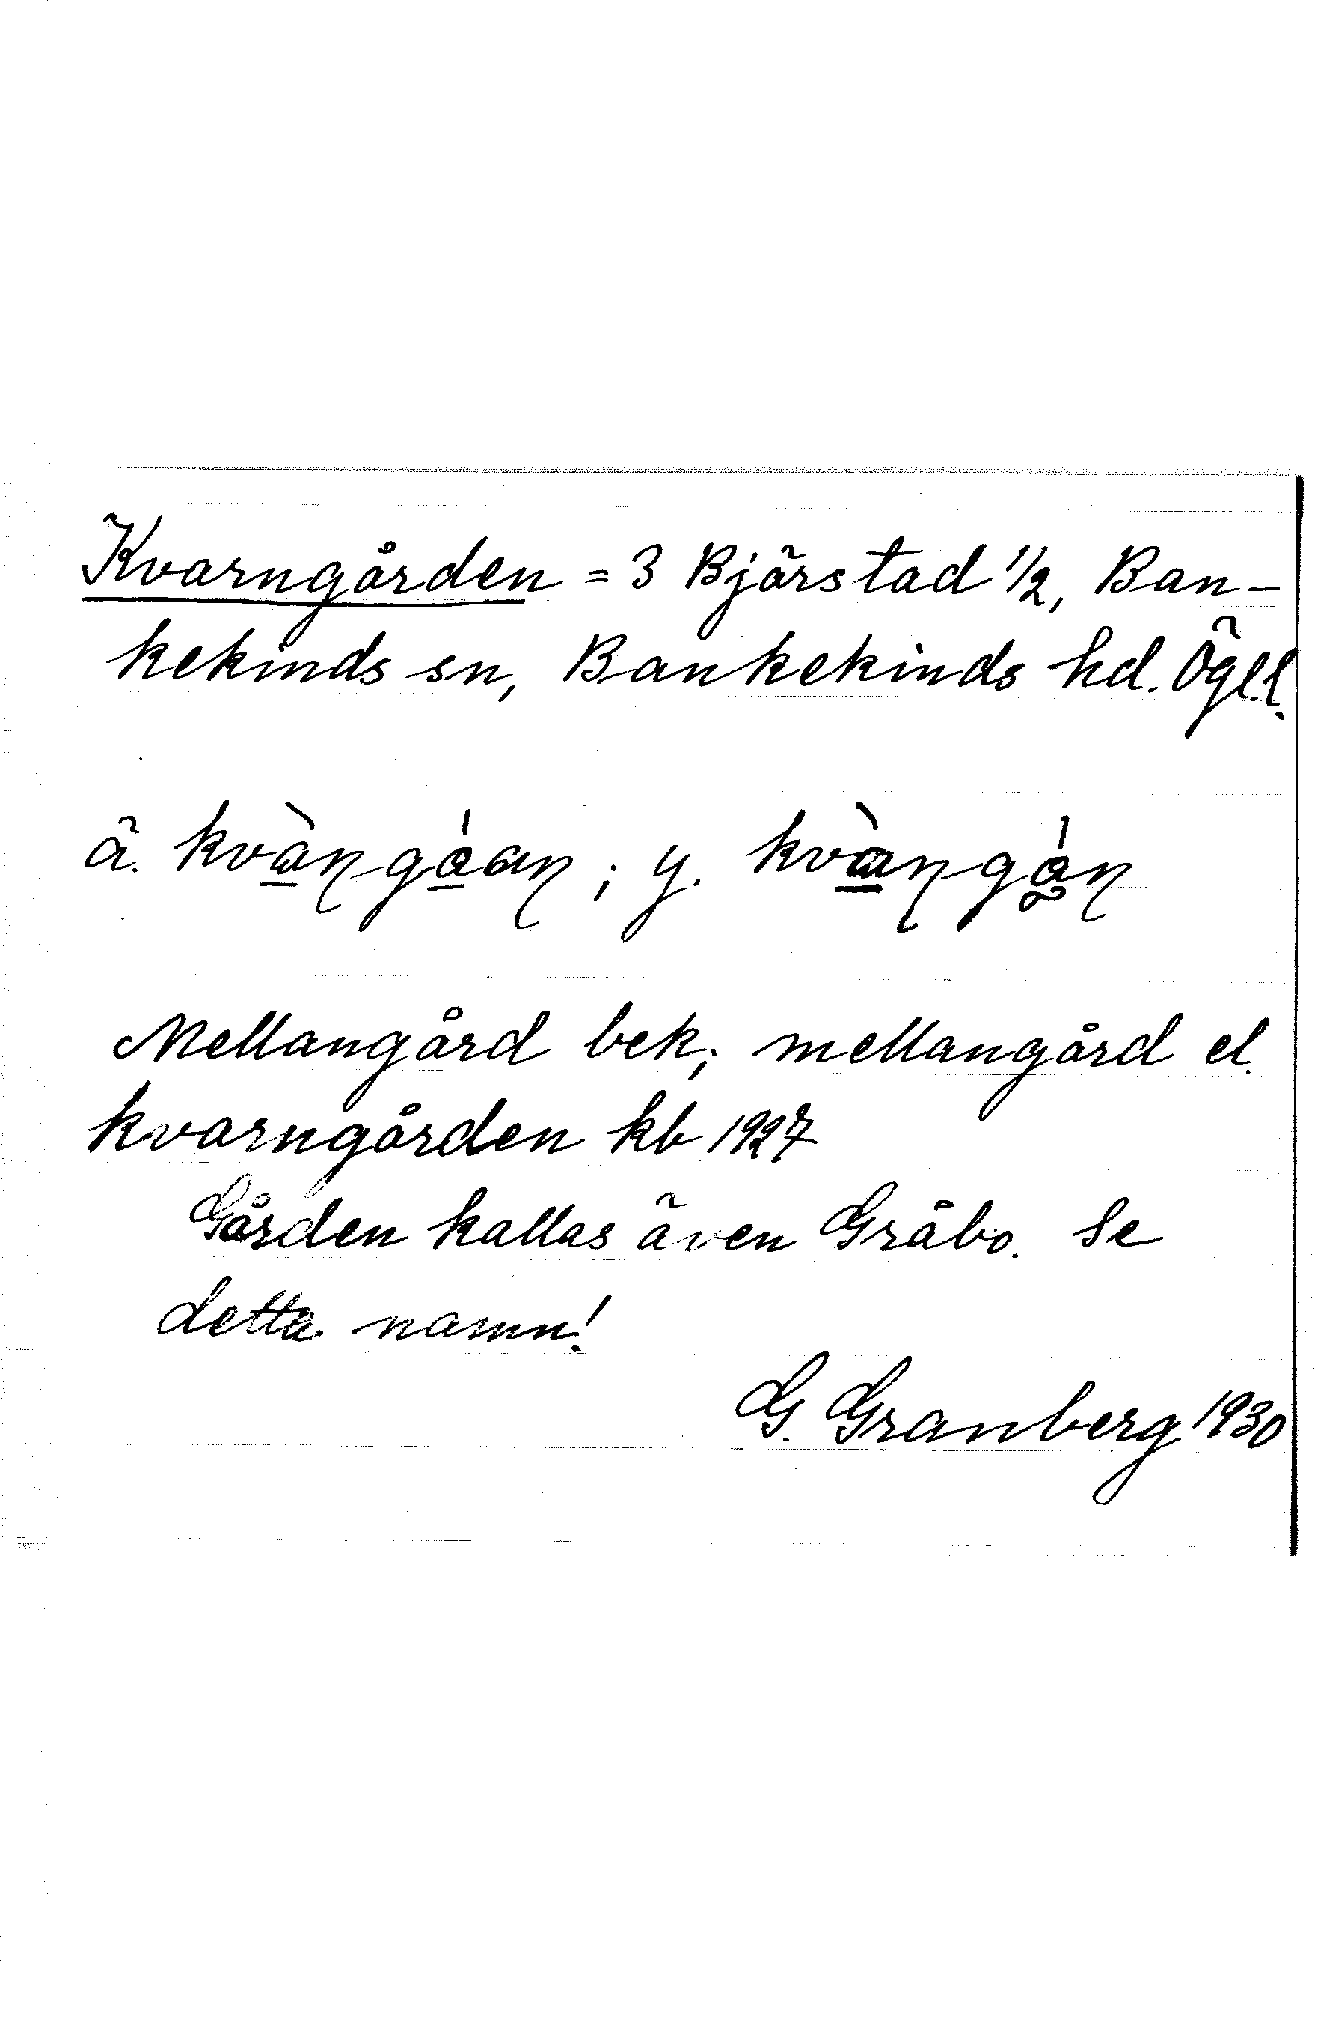 Kvarngården = 3 Bjärstad 1/2, Ban-
kekinds sn, Bankekinds hd. Ögl.l.
ä. kvàɳgáaɳ ; y. kvàɳgáɳ
Mellangård bek; mellangård el.
kvarngården kb 1927
Gården kallas även Gråbo. Se
detta namn!
G. Granberg 1930